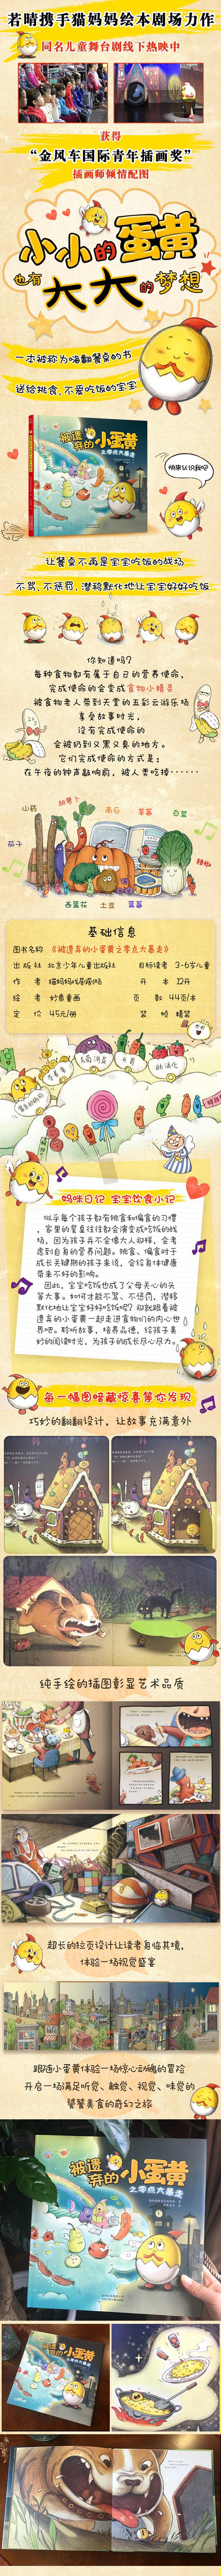 若晴携手猫妈妈绘本剧场力作
同名儿童舞台剧线下热映中
获得
“金风车国际青年插画奖”
插画师倾情配图
小小的蛋黄
也有大大的梦想
一本被称为嗨翻餐桌的书
送给挑食、不爱吃饭的宝宝
被遗弃的小蛋黄
之零点大暴走
快来认识我吧
让餐桌不再是宝宝吃饭的战场
不骂、不惩罚,潜移默化地让宝宝好好吃饭
你知道吗?
每种食物都有属于自己的营养使命,
完成使命的会变成食物小精灵
被食物老人带到天堂的五彩云游乐场
享受故事时光,
没有完成使命的
会被扔到又黑又臭的地方。
它们完成使命的方式是:
在午夜的钟声敲响前,被人类吃掉······
山药
胡萝卜
南瓜
草莓
白菜
茄子
辣椒
西蓝花
土豆
蓝莓
基础信息
图书名称 《被遗弃的小蛋黄之零点大暴走》
出版社 北京少年儿童出版社
目标读者 3-6岁儿童
作者 猫妈妈绘本剧场
开本 12开
绘者 妙意童画
页数 44页/本
定价 45元/册
装帧 精装
助消化
妈咪日记 宝宝饮食小记
似乎每个孩子都有挑食和偏食的习惯
,家里的餐桌往往都会演变成吃饭的战
场,因为孩子并不会像大人那样,会考
虑到自身的营养问题。挑食、偏食对于
成长关键期的孩子来说,会给身体健康
带来不好的影响。
因此,宝宝吃饭也成了父母关心的头
等大事。如何才能不骂、不惩罚,潜移
默化地让宝宝好好吃饭呢?那就跟着被
遗弃的小蛋黄一起走进食物们的内心世
界吧。聆听故事,培养品德,给孩子美
妙的阅读时光,为孩子的成长尽心尽力。
每一幅图暗藏惊喜等你发现
巧妙的翻翻设计,让故事充满意外
纯手绘的插图彰显艺术品质
超长的拉页设计让读者身临其境,
体验一场视觉盛宴
跟随小蛋黄体验一场惊心动魄的冒险
开启一场满足听觉、触觉、视觉、味觉的
饕餮美食的奇幻之旅
被遗弃的小蛋黄
之零点大暴走
被遗弃的小蛋黄
之零点大暴走